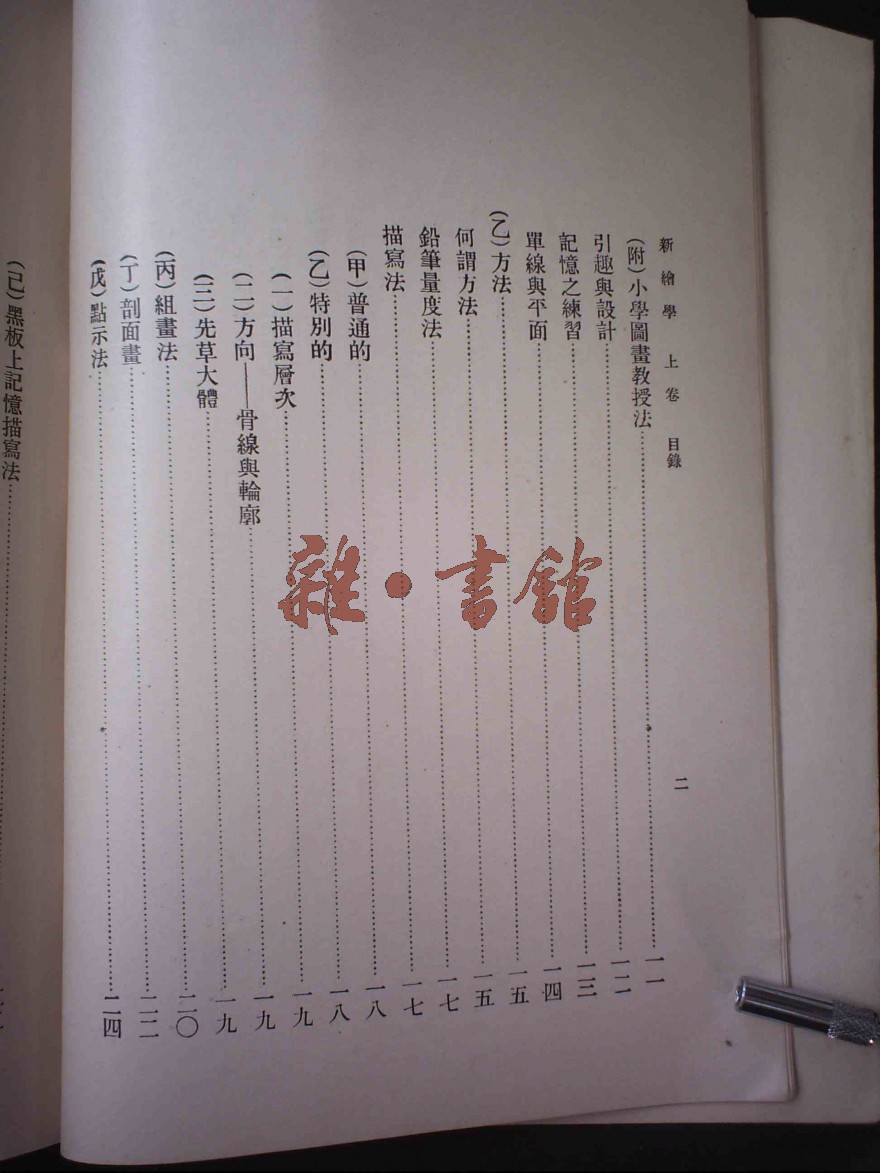 新繪學 上卷 目錄 二
(附)小學圖畫教授法……一一
引趣與設計……一二
記憶之練習……一三
單線與平面……一四
(乙)方法……一五
何謂方法……一五
鉛筆量度法……一七
描寫法……一七
(甲)普通的……一八
(乙)特別的……一八
(一)描寫層次……一九
(二)方向——骨線與輪廓……一九
(三)先草大體……一九
(丙)組畫法……二〇
(丁)剖面畫……二二
(戊)點示法……二四
(己)黑板上記憶描寫法……
雜·書館